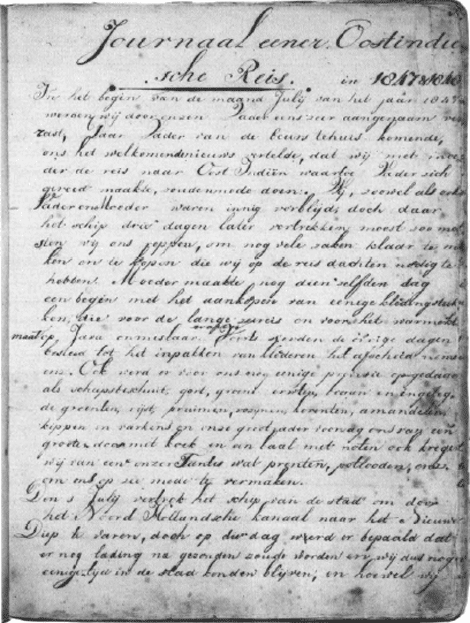 Journaal eener Oostindie
sche Reis. in 1847 & 1848
In het begin van de maand July van het jaar 1847
werden wij door onzen Papa eens zeer aangenaam ver
rast, Daar Vader van de beurs tehuis komende,
ons het welkome nieuws vertelde, dat wij met
der de reis naar Oost Indiën waartoe Vader zich
gereed maakte, zouden mede doen. Wij, zoowel als onze
Vader en Moeder waren innig verblijd; doch daar
het schip drie dagen later vertrekken moest zoo mo
sten wij ons reppen, om nog vele zaken klaar te ma
ken en te koopen die wij op de reis dachten noodig te
hebben. Moeder maakte nog dien zelfden dag
een begin met het aankopen van eenige kledingstuk
ken, die voor de lange zeereis en voor het warme
op Java onmisbaar. Voorts werden de overige dagen
besteed tot het inpakken van kinderen het afscheid nemen
enz. Ook werd er voor ons nog eenige provisie opgedaan
als scheepsbeschuit, gort, groene erwten, boonen en ingeleg
de groenten, rijst, pruimen, rozijnen, korenten, amandelen,
kippen en varkens en onze grootvader voorzag ons van een
groote doos met koek en een zaal met noten ook kregen
wij van een onzer Tantes wat prenten, potlooden, enz.
om ons op zee mede te vermaken.
Den 5 July vertrok het schip van de stad om door
het Noord Hollandsche kanaal naar het Nieuwe
Diep te varen, doch op dien dag werd er bepaald dat
er nog lading na gezonden zoude worden en wij dus nog
eenige tijd in de stad konden blijven; en hoewel wij